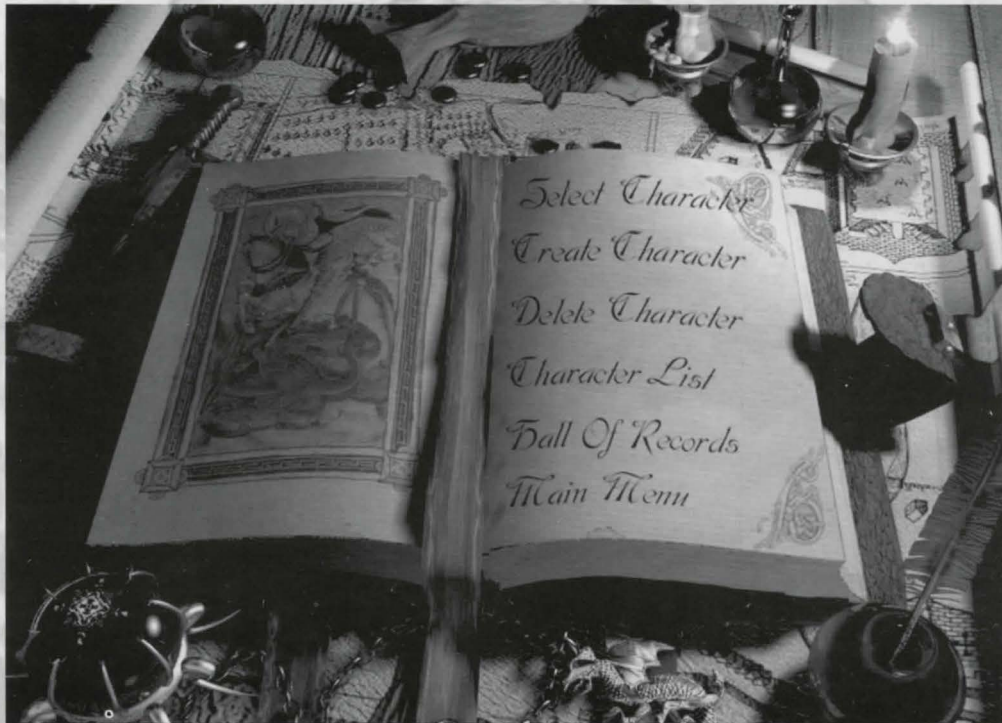 Select Character
Create Character
Delete Character
Character List
Hall Of Records
Main Menu